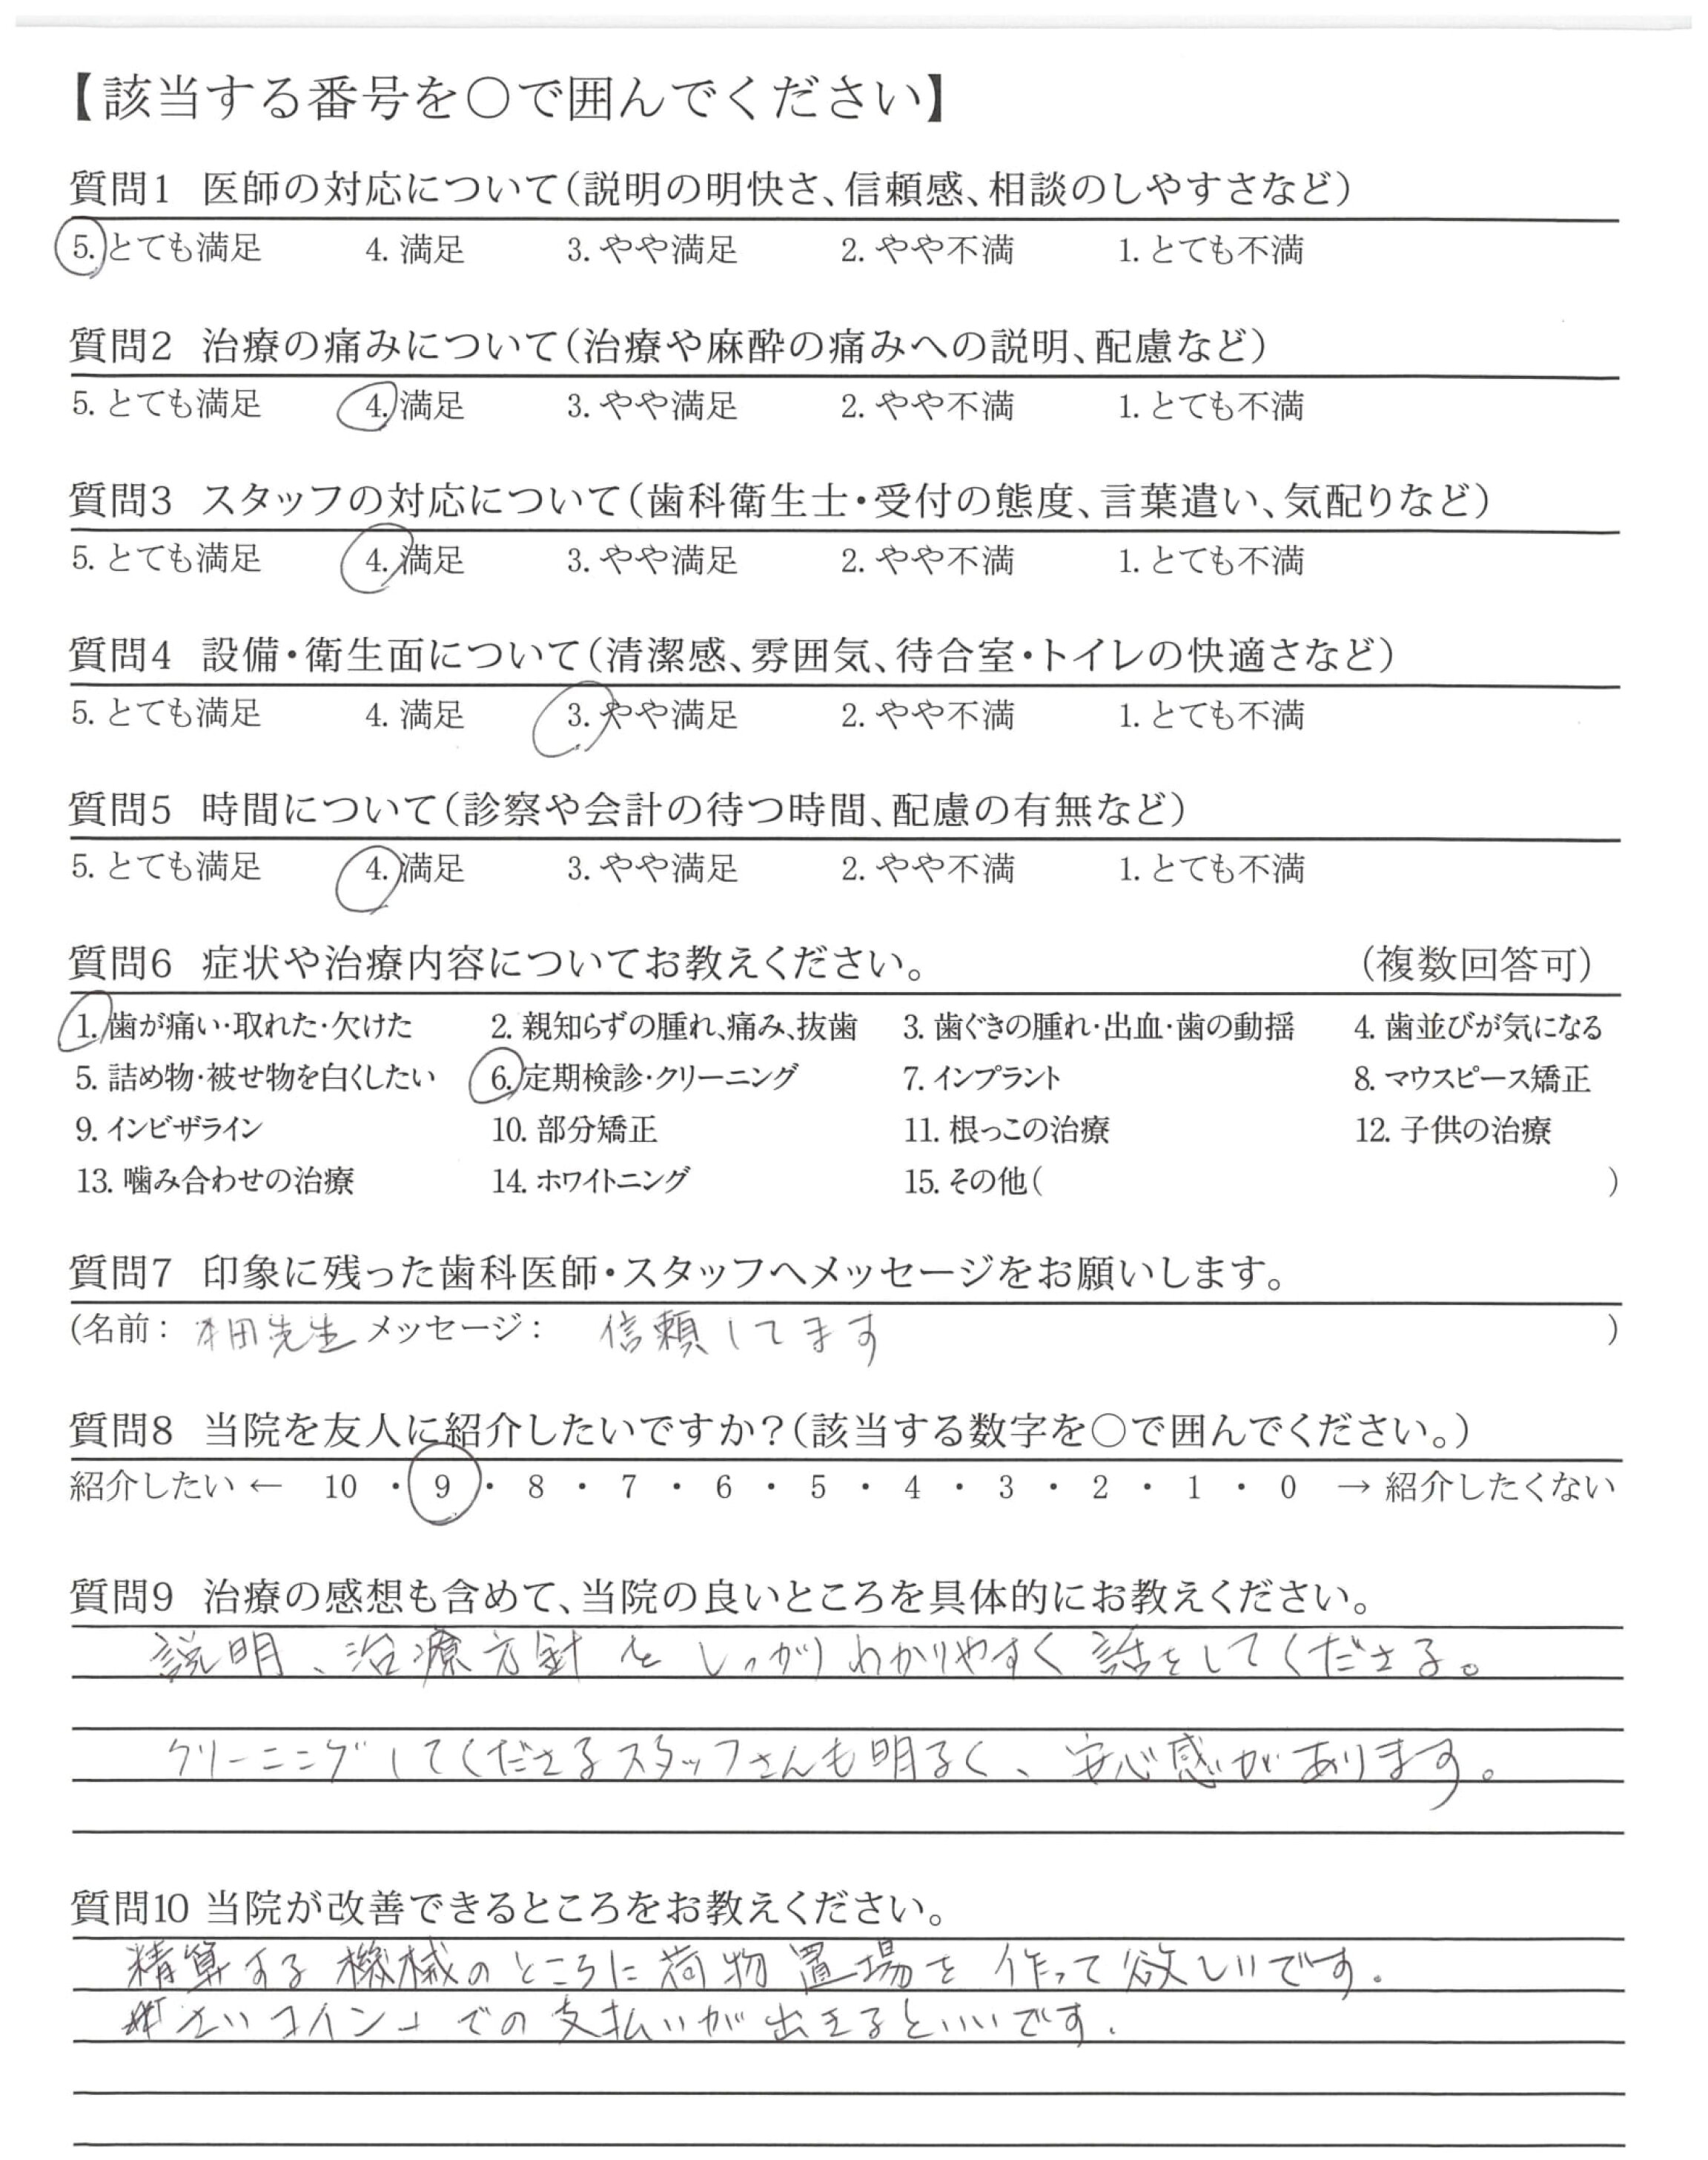 【該当する番号を〇で囲んでください】
質問1 医師の対応について(説明の明快さ、信頼感、相談のしやすさなど)
5. とても満足 4. 満足 3. やや満足 2. やや不満 1. とても不満
質問2 治療の痛みについて(治療や麻酔の痛みへの説明、配慮など)
5. とても満足 4. 満足 3. やや満足 2. やや不満 1. とても不満
質問3 スタッフの対応について(歯科衛生士・受付の態度、言葉遣い、気配りなど)
5. とても満足 4. 満足 3. やや満足 2. やや不満 1. とても不満
質問4 設備・衛生面について(清潔感、雰囲気、待合室・トイレの快適さなど)
5. とても満足 4. 満足 3. やや満足 2. やや不満 1. とても不満
質問5 時間について(診察や会計の待つ時間、配慮の有無など)
5. とても満足 4. 満足 3. やや満足 2. やや不満 1. とても不満
質問6 症状や治療内容についてお教えください。 (複数回答可)
1. 歯が痛い・取れた・欠けた 2. 親知らずの腫れ、痛み、抜歯 3. 歯ぐきの腫れ・出血・歯の動揺 4. 歯並びが気になる
5. 詰め物・被せ物を白くしたい 6. 定期検診・クリーニング 7. インプラント 8. マウスピース矯正
9. インビザライン 10. 部分矯正 11. 根っこの治療 12. 子供の治療
13. 噛み合わせの治療 14. ホワイトニング 15. その他( )
質問7 印象に残った歯科医師・スタッフへメッセージをお願いします。
(名前: 本田先生 メッセージ: 信頼してます )
質問8 当院を友人に紹介したいですか?(該当する数字を〇で囲んでください。)
紹介したい ← 10 ・ 9 ・ 8 ・ 7 ・ 6 ・ 5 ・ 4 ・ 3 ・ 2 ・ 1 ・ 0 → 紹介したくない
質問9 治療の感想も含めて、当院の良いところを具体的にお教えください。
説明、治療方針をしっかりわかりやすく話をしてくださる。
クリーニングしてくださるスタッフさんも明るく、安心感があります。
質問10 当院が改善できるところをお教えください。
精算する機械のところに荷物置場を作って欲しいです。
「さいコイン」での支払いが出きるといいです.